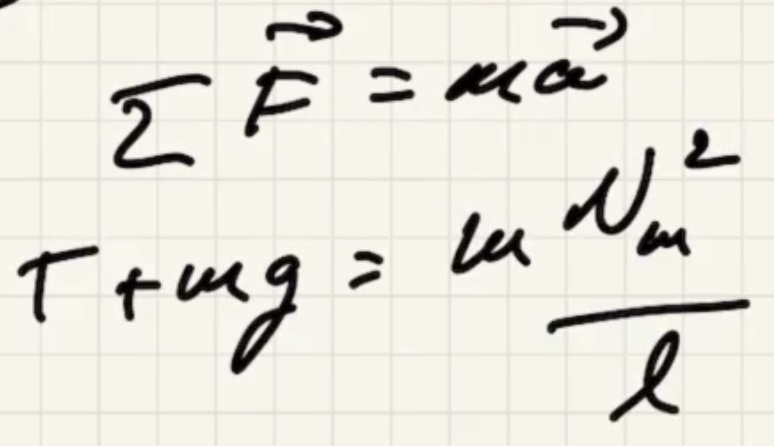 ∑ F⃗ = ma⃗
T + mg = m v_m² / l